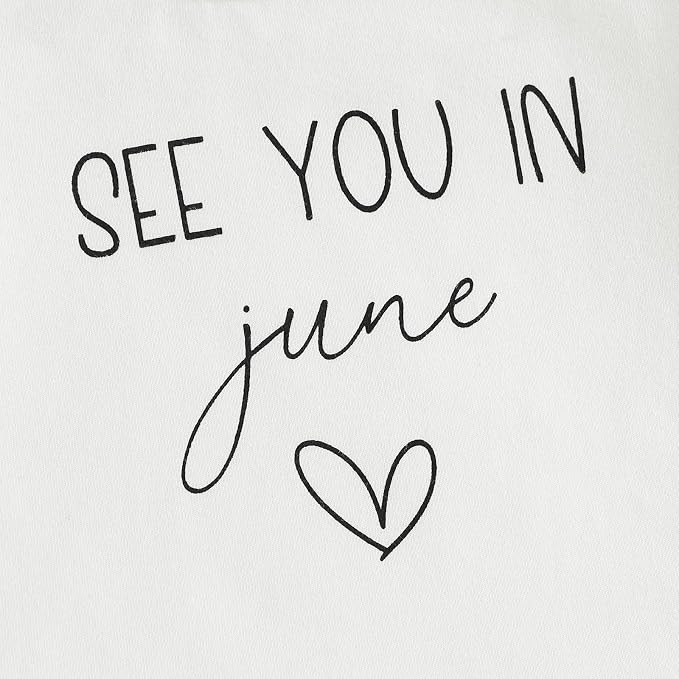 SEE YOU IN
june